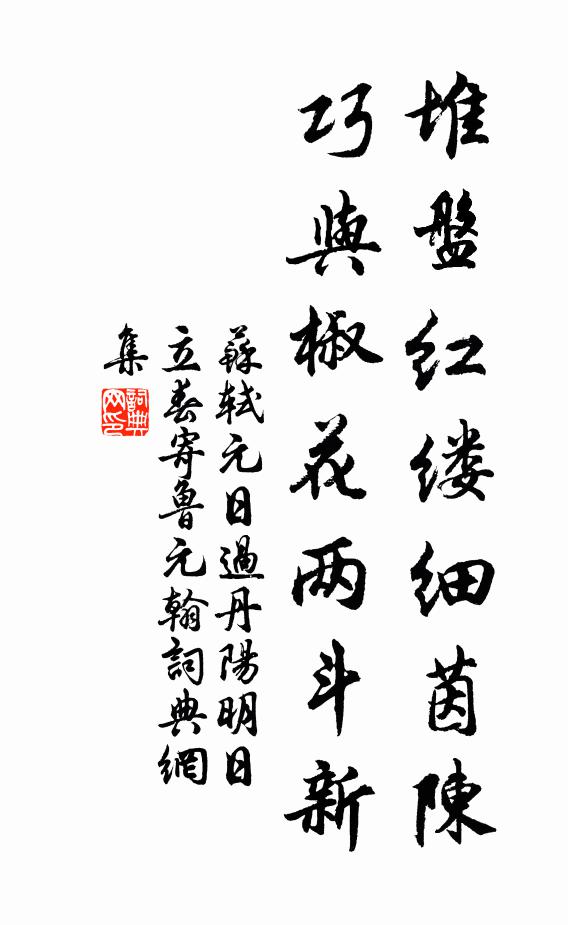 堆盤红缕细茵陳
巧與椒花两斗新
蘇軾元日過丹陽明日
立春寄魯元翰詞典網
集
詞典
网印